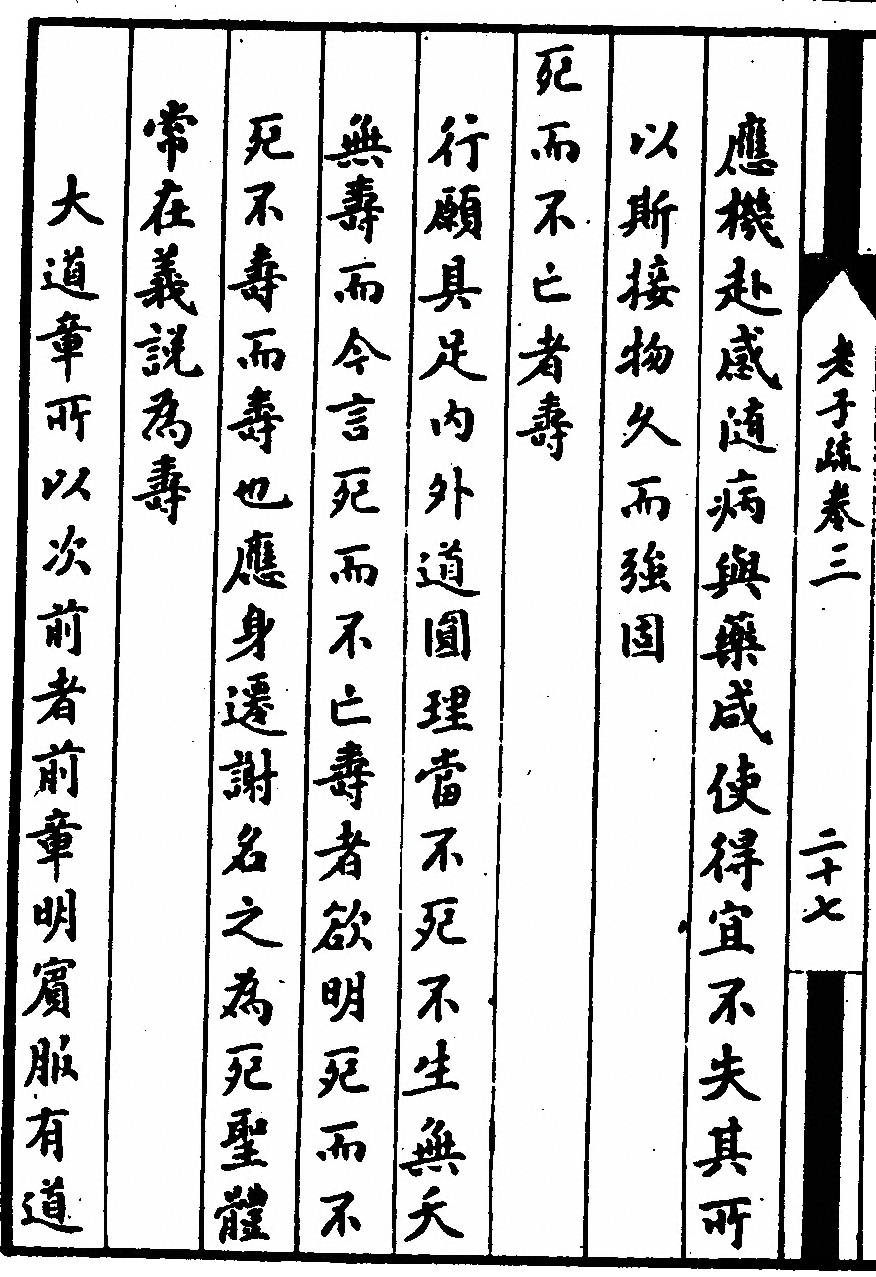 老子疏卷三
二十七
應機赴感随病與藥咸使得宜不失其所
以斯接物久而強固
死而不亡者壽
行願具足内外道圓理當不死不生無夭
無壽而今言死而不亡壽者欲明死而不
死不壽而壽也應身遷謝名之為死聖體
常在義説為壽
大道章所以次前者前章明賓服有道